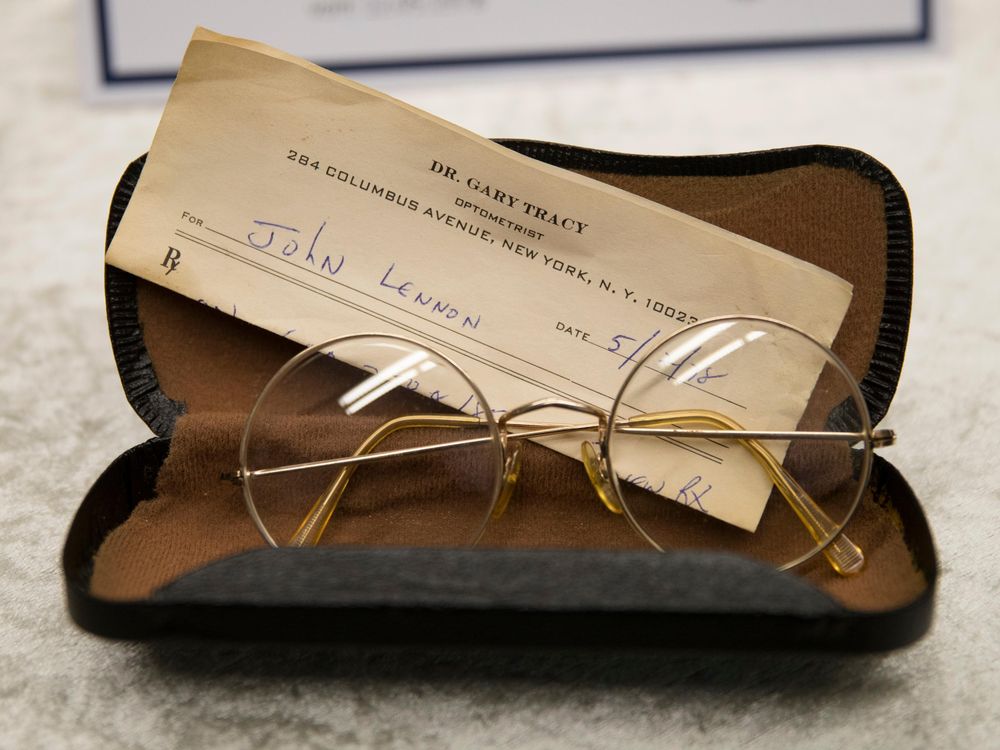 DR. GARY TRACY
OPTOMETRIST
284 COLUMBUS AVENUE, NEW YORK, N. Y. 10023
FOR John Lennon
DATE 5/
Rx
Rx